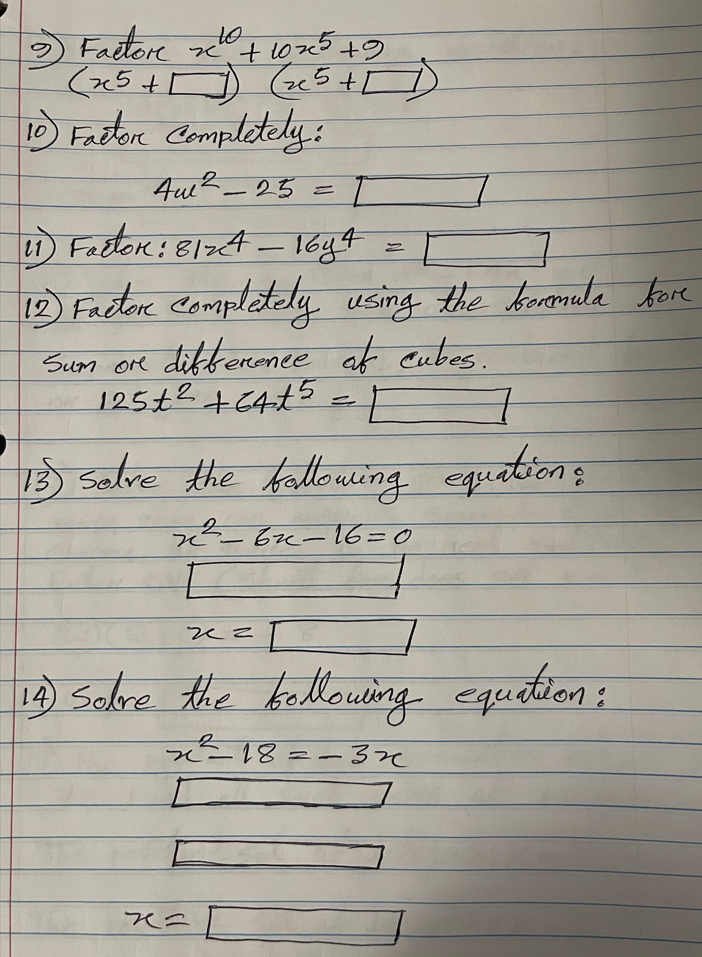 9) Factor x^10 + 10x^5 + 9
(x^5 + ) (x^5 + )
10) Factor completely:
4w^2 - 25 =
11) Factor: 81x^4 - 16y^4 =
12) Factor completely using the formula for
sum or difference of cubes.
125t^2 + 64t^5 =
13) Solve the following equation:
x^2 - 6x - 16 = 0
x =
14) Solve the following equation:
x^2 - 18 = -3x
x =